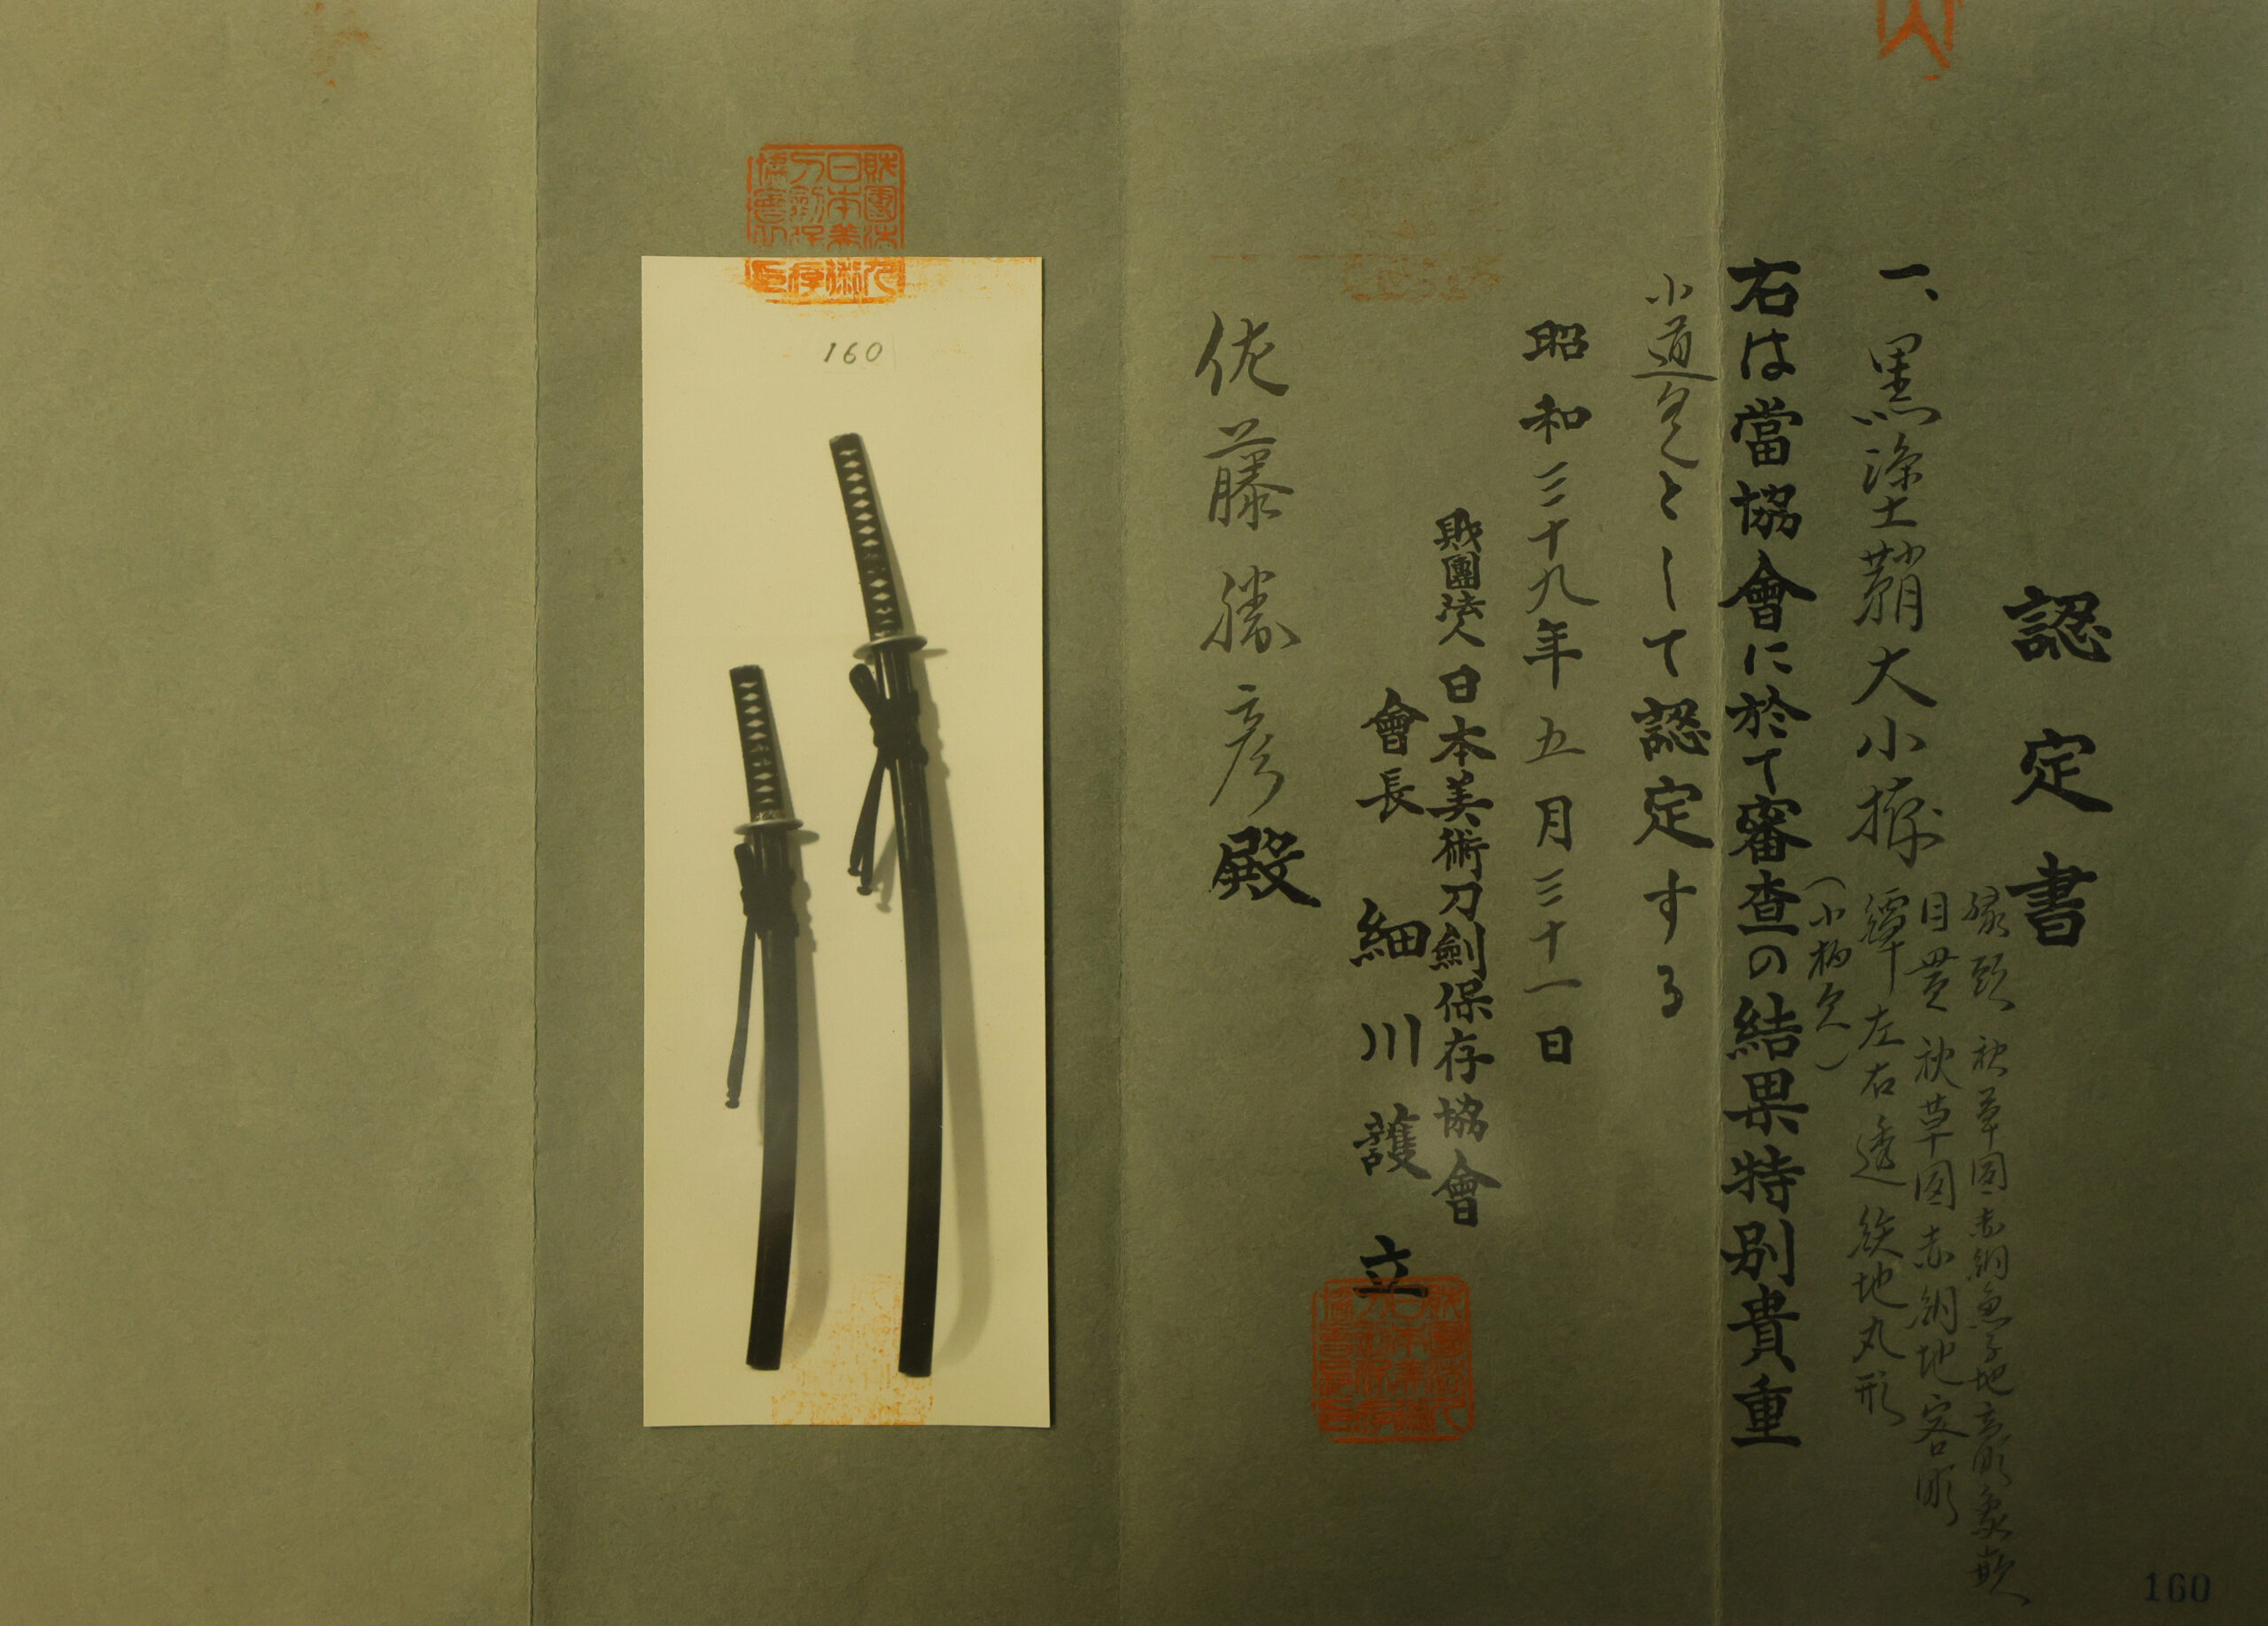 認定書
一、黒塗鞘大小拵
縁頭 秋草図赤銅魚子地高彫象嵌
目貫 秋草図赤銅地容彫
鐔 左右透鉄地丸形
(小柄欠)
右は當協會に於て審査の結果特別貴重
小道具として認定する
昭和三十九年五月三十一日
財團法人日本美術刀劍保存協會
會長 細川護立
佐藤勝彦殿
160
財團法人日本美術刀劍保存協會印
160